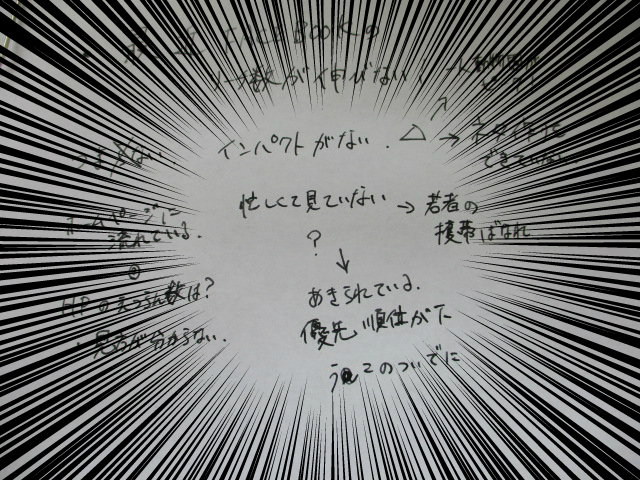 最近 FACEBOOKの
リーチ数が伸びない!
つまらない.
インパクトがない.
△→ネタ作りに
できていない.
忙しくて見ていない→若者の
携帯ばなれ
?
ホームページに
流れている.
◎
HPのえつらん数は?
・見方が分からない.
↓
あきられている.
優先順位が下
のついでに